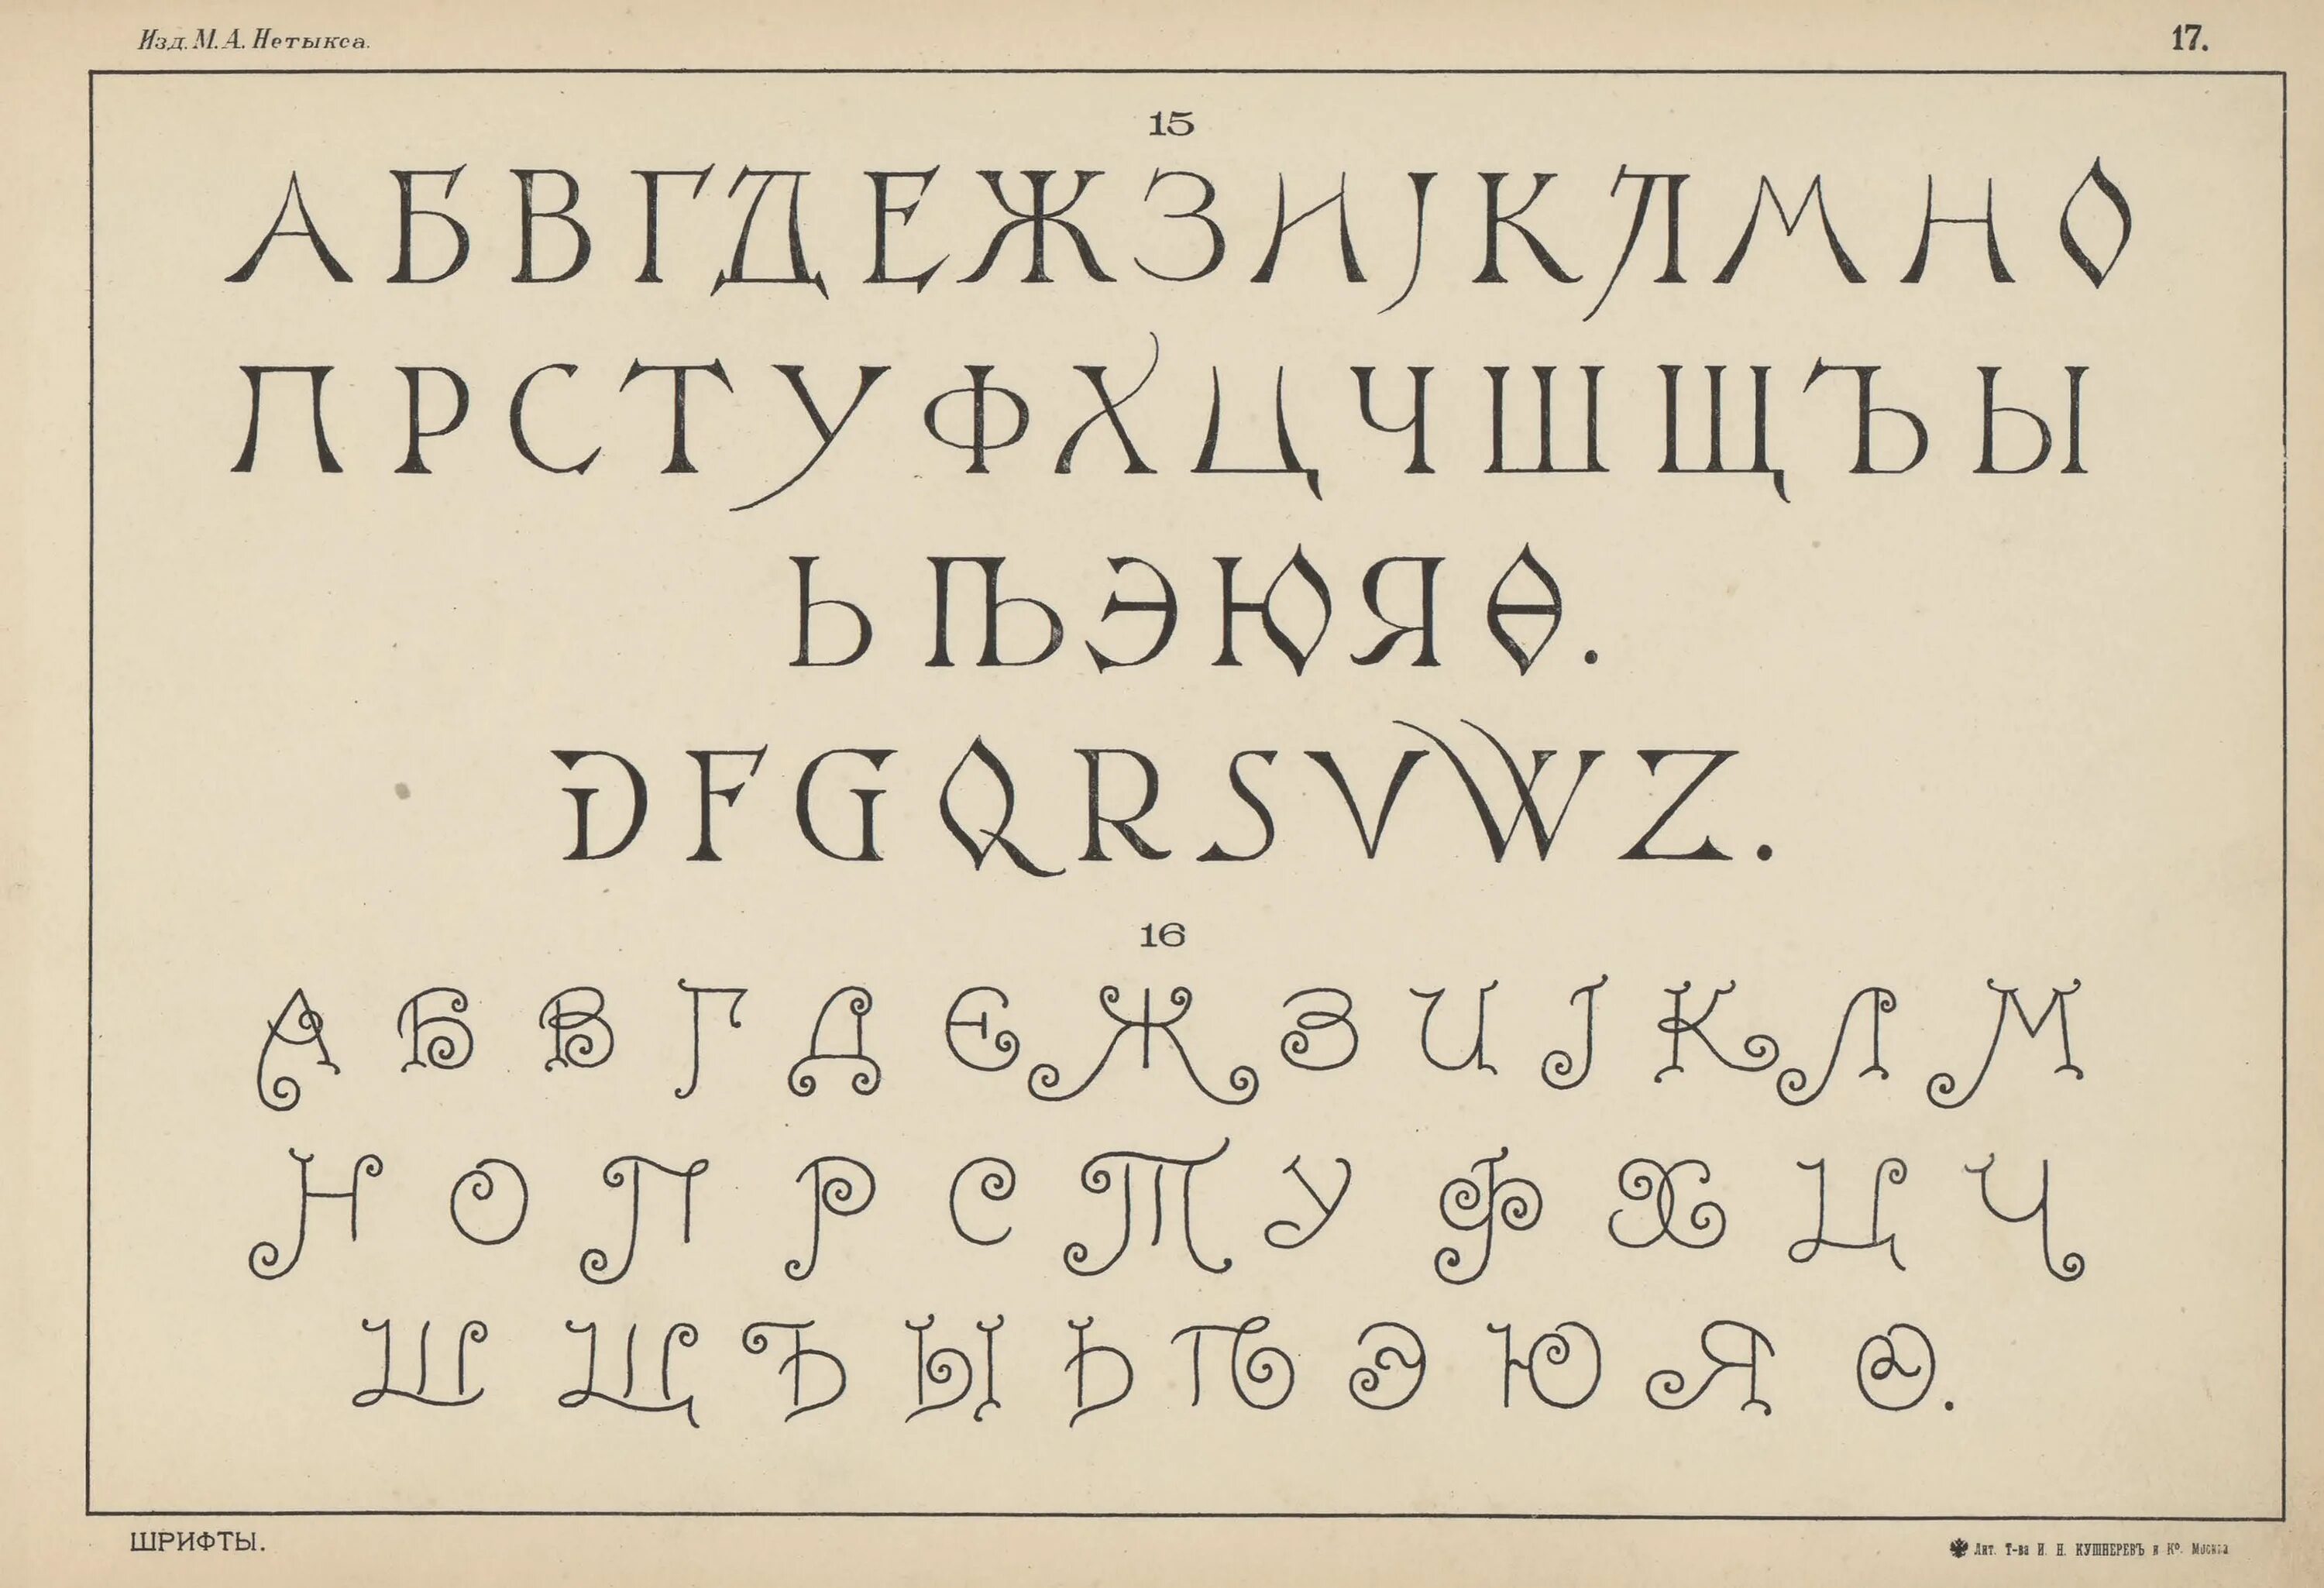 Изд. М. А. Нетыкса.
17.
15
А Б В Г Д Е Ж З И J К Л М Н О
П Р С Т У Ф Х Ц Ч Ш Щ Ъ Ы
Ь Ѣ Э Ю Я Ѳ.
D F G Q R S V W Z.
16
А Б В Г Д Е Ж З И J К Л М
Н О П Р С Т У Ф Х Ц Ч
Ш Щ Ъ Ы Ь Ѣ Э Ю Я Ѳ.
ШРИФТЫ.
Лит. Т-ва И. Н. КУШНЕРЕВЪ и Кº. Москва